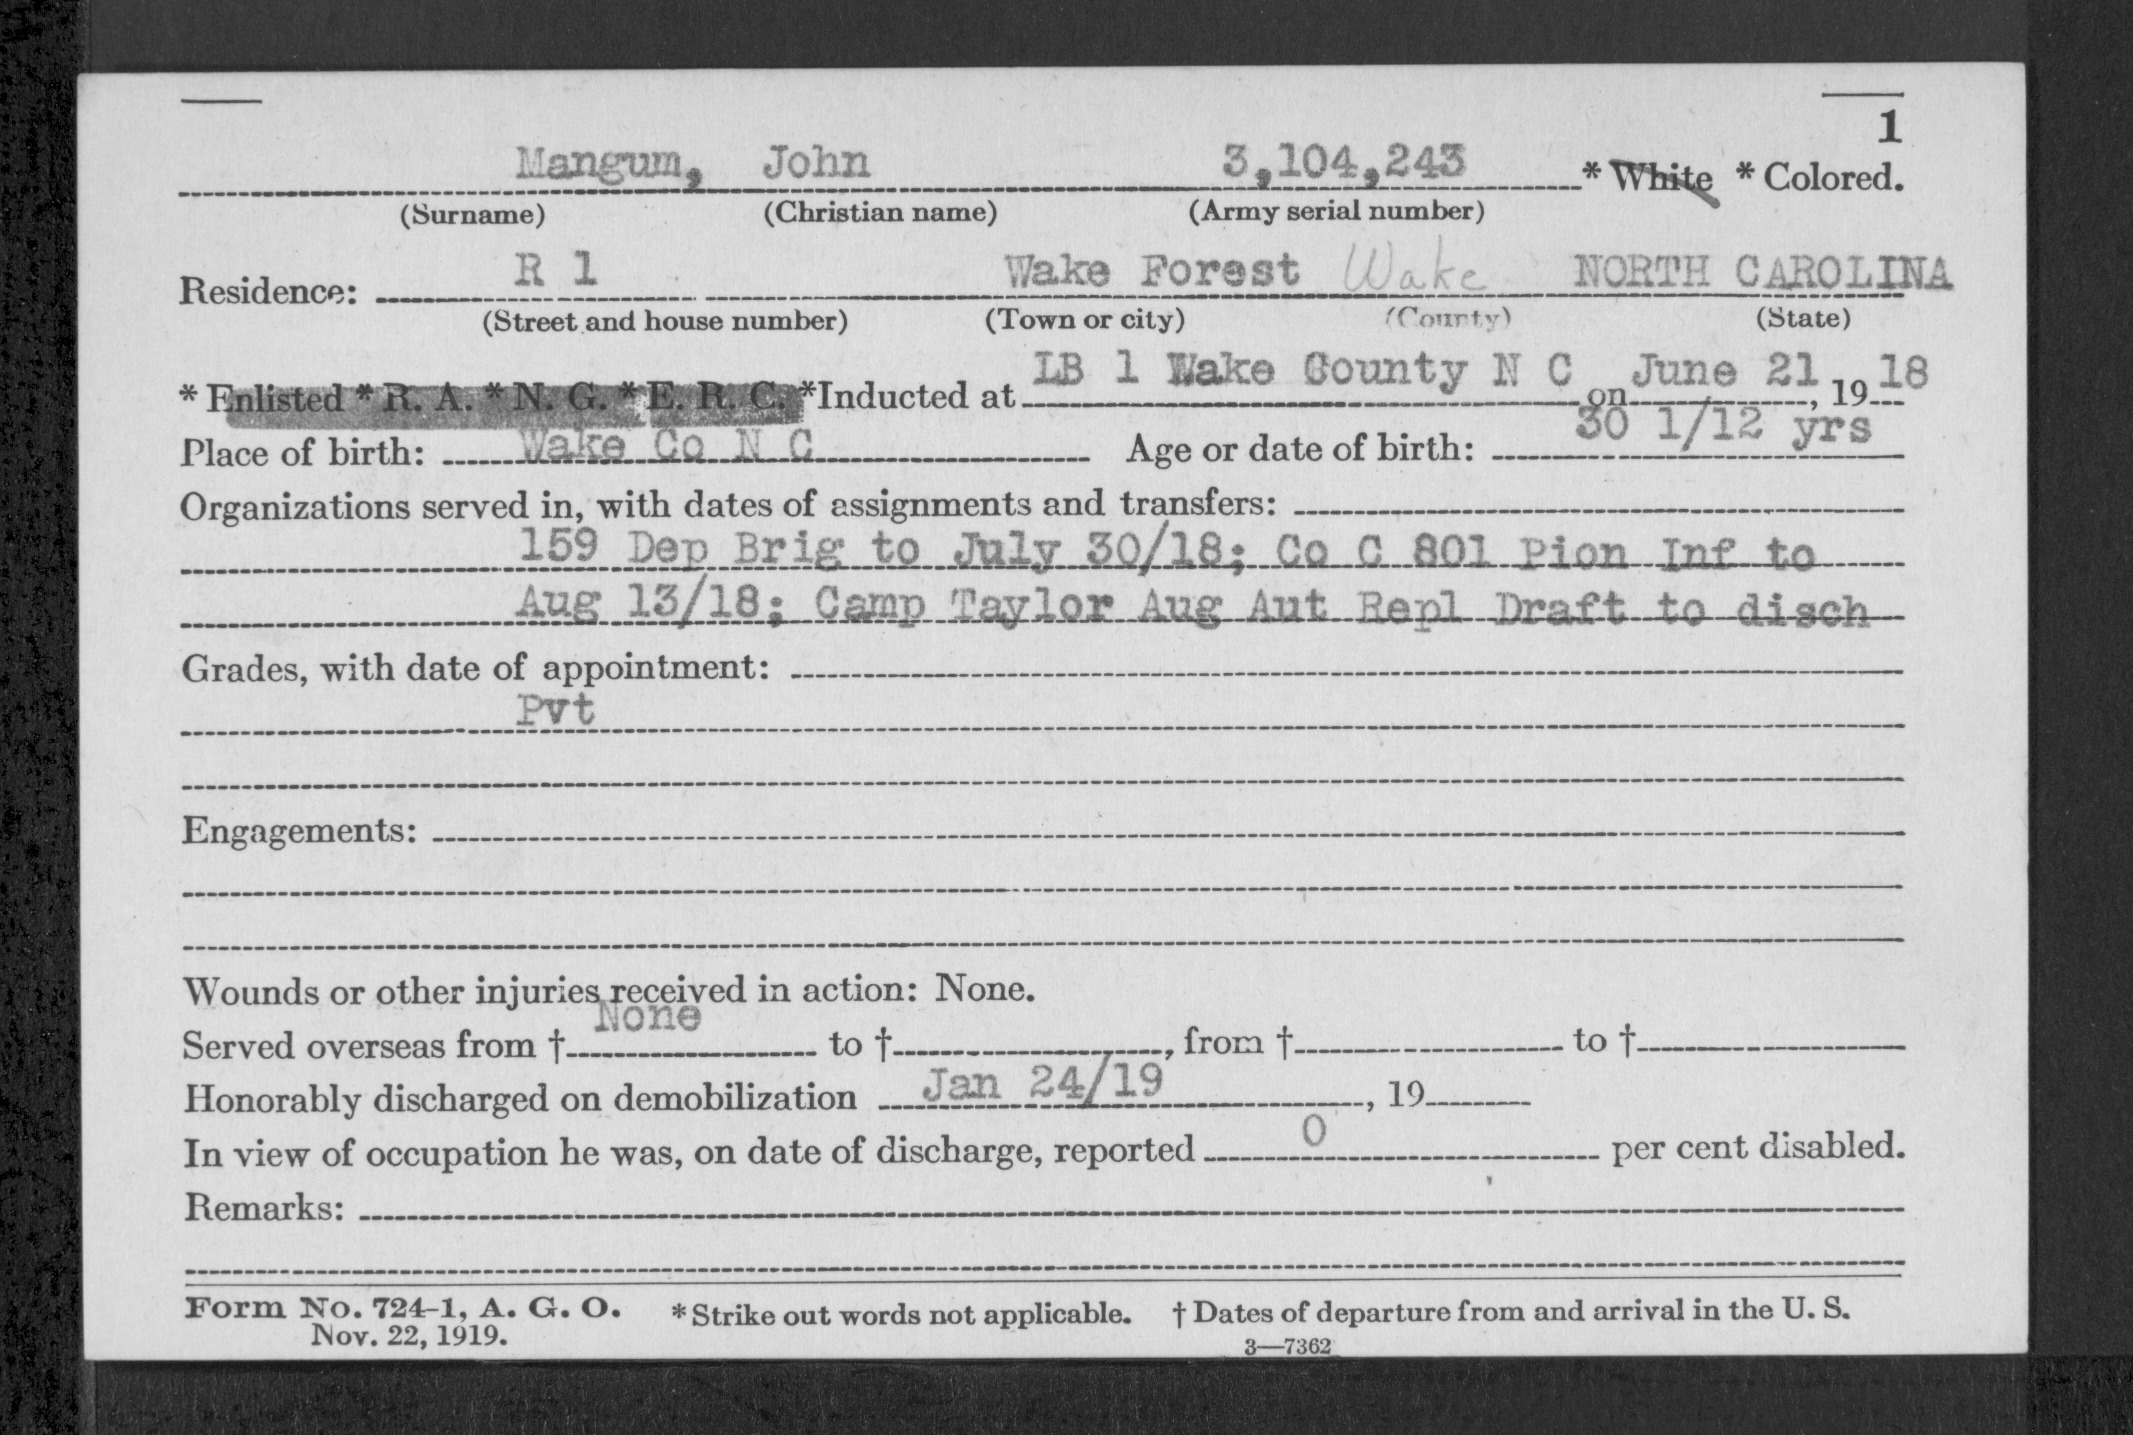 1
Mangum, John 3,104,243 * White * Colored.
(Surname) (Christian name) (Army serial number)
Residence: R 1 Wake Forest Wake NORTH CAROLINA
(Street and house number) (Town or city) (County) (State)
* Enlisted * R. A. * N. G. * E. R. C. *Inducted at LB 1 Wake County N C on June 21, 1918
Place of birth: Wake Co N C Age or date of birth: 30 1/12 yrs
Organizations served in, with dates of assignments and transfers:
159 Dep Brig to July 30/18; Co C 801 Pion Inf to
Aug 13/18; Camp Taylor Aug Aut Repl Draft to disch
Grades, with date of appointment:
Pvt
Engagements:
Wounds or other injuries received in action: None.
Served overseas from † None to †, from † to †
Honorably discharged on demobilization Jan 24/19, 19
In view of occupation he was, on date of discharge, reported 0 per cent disabled.
Remarks:
Form No. 724-1, A. G. O. * Strike out words not applicable. † Dates of departure from and arrival in the U. S.
Nov. 22, 1919. 3—7362